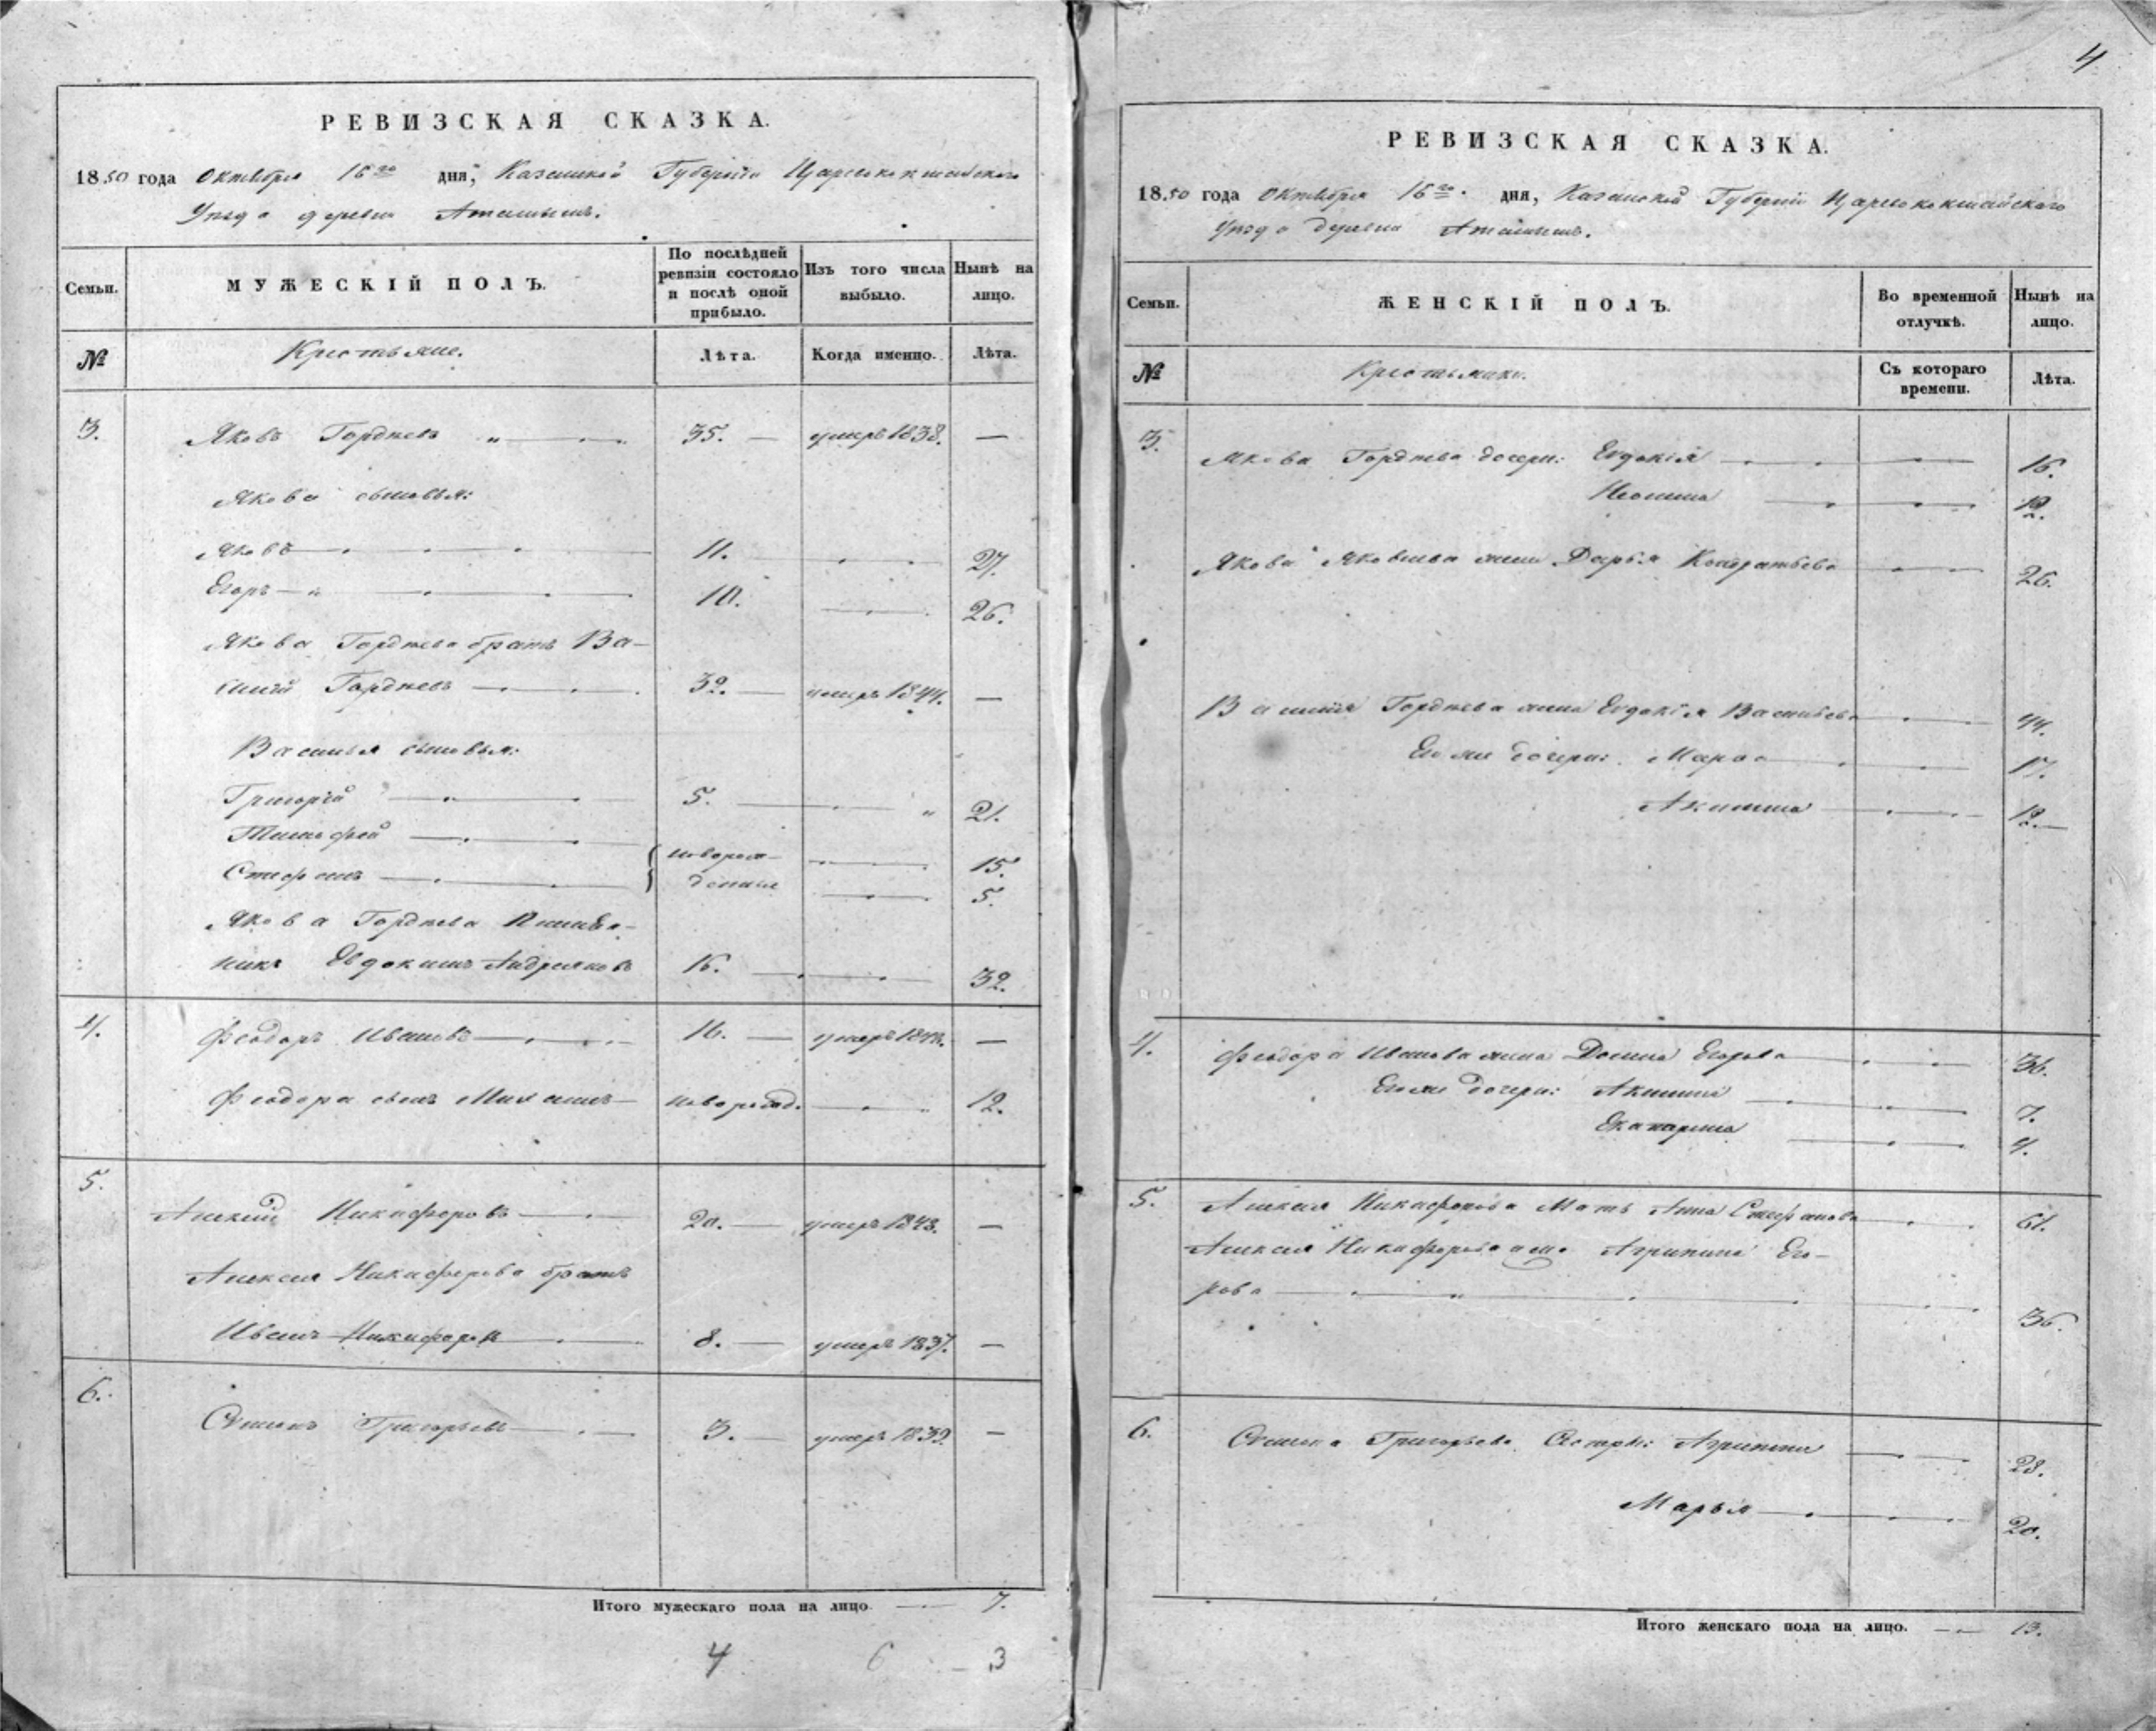 РЕВИЗСКАЯ СКАЗКА.
1850 года Октября 16го дня, Казанской Губерніи Царевококшайскаго
Уѣзда деревни
Семьи.
МУЖЕСКІЙ ПОЛЪ.
По послѣдней ревизіи состояло и послѣ оной прибыло.
Изъ того числа выбыло.
Нынѣ на лицо.
№
Крестьяне.
Лѣта.
Когда именно.
Лѣта.
3. Яковъ Гордѣевъ 35. умеръ 1838. —
Якова сыновья:
Яковъ 11. 27.
Егоръ 10. 26.
Якова Гордѣева братъ Ва-
силій Гордѣевъ 32. умеръ 1844. —
Василья сыновья:
Григорій 5. 21.
Тимофей новорож- 15.
Стефанъ денные 5.
Якова Гордѣева
Евдокимъ Андреяновъ 16. 32.
4. Феодоръ Ивановъ 16. умеръ —
Феодора сынъ Михаилъ новорожд. 12.
5. Алексѣй Никифоровъ 20. умеръ 1848. —
Алексея Никифорова братъ
Иванъ Никифоровъ 8. умеръ 1837. —
6. Семенъ Григорьевъ 3. умеръ 1839. —
Итого мужескаго пола на лицо. 7.
4 6 3
4
РЕВИЗСКАЯ СКАЗКА.
1850 года Октября 16го дня, Казанской Губерніи Царевококшайскаго
Уѣзда деревни
Семьи.
ЖЕНСКІЙ ПОЛЪ.
Во временной отлучкѣ.
Нынѣ на лицо.
№
Крестьянки.
Съ котораго времени.
Лѣта.
3. Якова Гордѣева дочери: Евдокія 16.
12.
Якова Яковлева жена Дарья Кондратьева 26.
Василія Гордѣева жена Евдокія Васильева 44.
Его же дочери: Марфа 17.
Акилина 12.
4. Феодора Иванова жена Домна Егорова 36.
Его же дочери: Акилина 7.
Екатерина 4.
5. Алексея Никифорова Мать Анна Стефанова 61.
Алексея Никифорова жена Агрипина Его-
рова 36.
6. Семена Григорьева Сестры: Агрипина 28.
Марья 20.
Итого женскаго пола на лицо. 13.